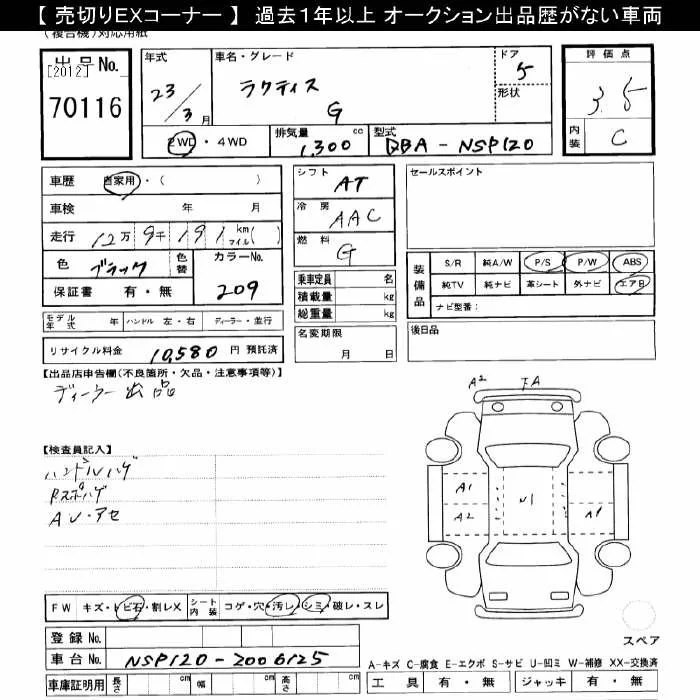 【 売切りEXコーナー 】 過去1年以上 オークション出品歴がない車両
(複合機)対応用紙
出品 No.
[2012]
70116
年式
23/3月
車名・グレード
ラクティス
G
ドア
5
形状
評価点
3.5
内装
C
2WD・4WD
排気量
1,300 cc
型式
DBA - NSP120
車歴 自家用・( )
車検 年 月
走行 12万9千191 km マイル( )
色 ブラック
色替
カラーNo.
209
保証書 有・無
シフト AT
冷房 AAC
燃料 G
乗車定員 名
積載量 kg
総重量 kg
名変期限
月 日
セールスポイント
装備品
S/R 純A/W P/S P/W ABS
純TV 純ナビ 革シート 外ナビ エアB
ナビ型番:
後日品
モデル年式 年 ハンドル 左・右 ディーラー・並行
リサイクル料金 10,580 円 預託済
【出品店申告欄(不良箇所・欠品・注意事項等)】
ディーラー出品
【検査員記入】
ハンドルハゲ
Rスポハゲ
AU・アセ
A2
A1
A2
A1
FW キズ・トビ石・割レX
シート内装 コゲ・穴・汚レ・シミ・破レ・スレ
登録 No.
車台 No. NSP120-2006125
車庫証明用 長さ cm 幅 cm 高さ cm
スペア
A-キズ C-腐食 E-エクボ S-サビ U-凹ミ W-補修 XX-交換済
工具 有・無 ジャッキ 有・無